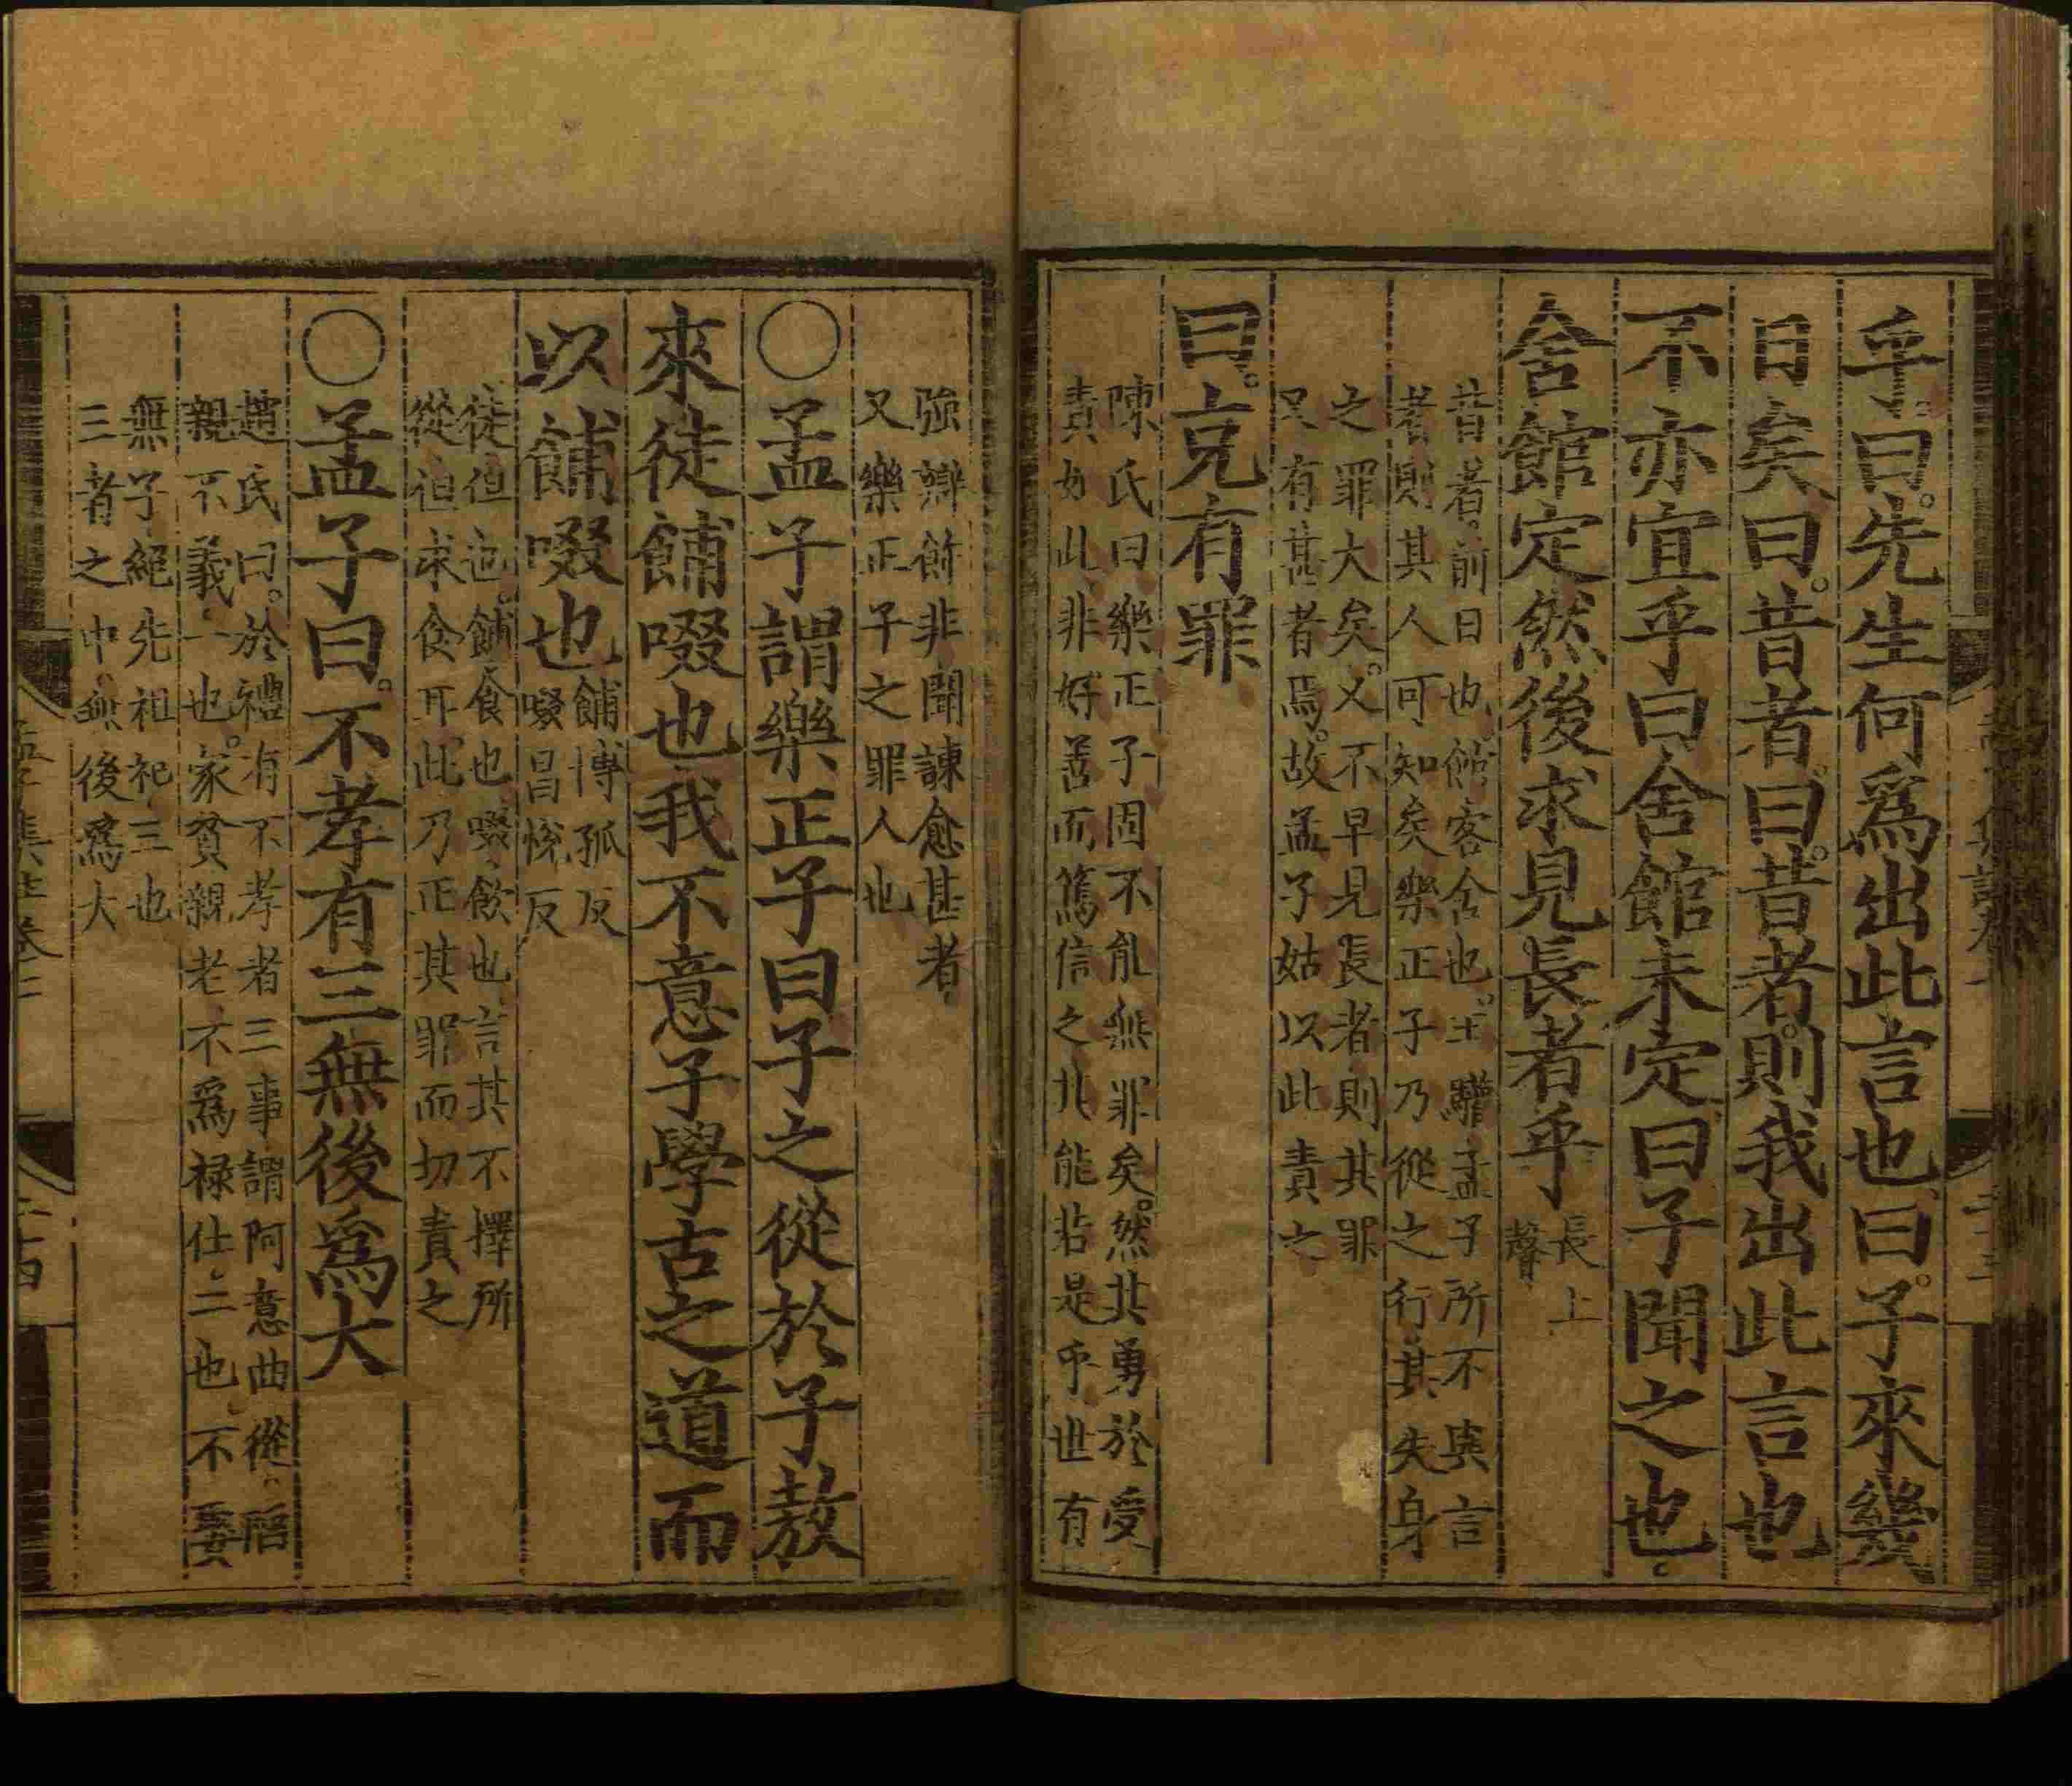 乎曰先生何爲出此言也曰子來幾
日矣曰昔者曰昔者則我出此言也
不亦宜乎曰舍館未定曰子聞之也
舍館定然後求見長者乎
長上
聲
昔者前日也館客舍也王驩孟子所不與言
者則其人可知矣樂正子乃從之行其失身
之罪大矣又不早見長者則其罪
又有甚者焉故孟子姑以此責之
曰克有罪
陳氏曰樂正子固不能無罪矣然其勇於受
責如此非好善而篤信之其能若是乎世有
強辯飾非聞諫愈甚者
又樂正子之罪人也
○孟子謂樂正子曰子之從於子敖
來徒餔啜也我不意子學古之道而
以餔啜也
餔博孤反
啜昌悅反
徒但也餔食也啜飲也言其不擇所
從但求食耳此乃正其罪而切責之
○孟子曰不孝有三無後爲大
趙氏曰於禮有不孝者三事謂阿意曲從陷
親不義一也家貧親老不爲祿仕二也不娶
無子絕先祖祀三也
三者之中無後爲大